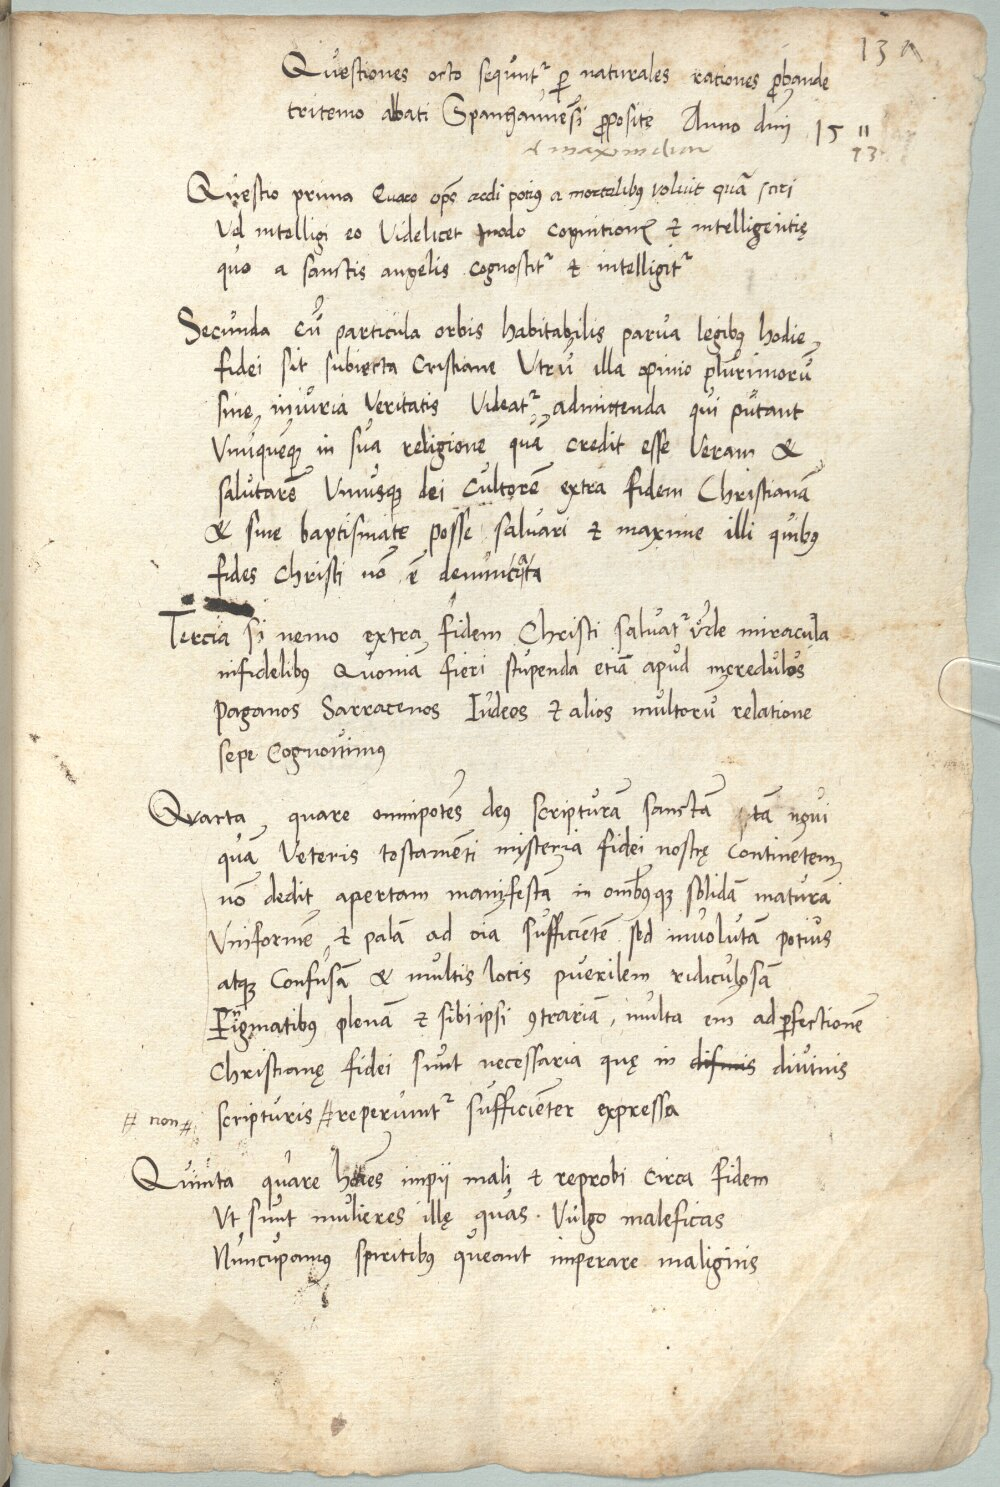 13
Questiones octo sequntr p naturales rationes pbande
tritemo abbati Spanhaimēsi pposite Anno dni 15 11
a maximilian
13
Questio prima Quare ops credi potius a mortalibus voluit quā sciri
Vel intelligi eo Videlicet modo cognitionis et intelligentię
quo a sanctis angelis cognoscitr et intelligitr
Secunda cū particula orbis habitabilis parva legibus hodie
fidei sit subiecta Cristiane Vtrū illa opinio plurimorū
sine iniuria Veritatis Videatr admittenda qui putant
Vnūquēque in sua religione quā credit esse Veram &
salutarē Vnusque dei cultorē extra fidem Christianā
& sine baptismate posse saluari et maxime illi quibus
fides Christi nō ē denunciata
Tercia si nemo extra fidem Christi saluatr vnde miracula
infidelibus Quoniā fieri stupenda etiā apud incredulos
Paganos Sarracenos Iudeos et alios multorū relatione
sepe Cognouimus
Qvarta quare omnipotēs deus scripturā sanctā tā noui
quā Veteris testamēti mysteria fidei nostrę continētem
nō dedit apertam manifestā in omībusque solidā maturā
Vniformē et palā ad oīa sufficiētē sed inuolutā potius
atque Confusā & multis locis puerilem ridiculosā
Enigmatibus plenā et sibiipsi 9trariā, multa em̄ ad pfectionē
Christianę fidei sunt necessaria quę in difinis diuinis
# non # scripturis # reperiuntr sufficiēter expressa
Quinta quare homēs impii mali et reprobi circa fidem
Vt sunt mulieres illę quas Vulgo maleficas
Nuncupamus spiritibus queant imperare malignis